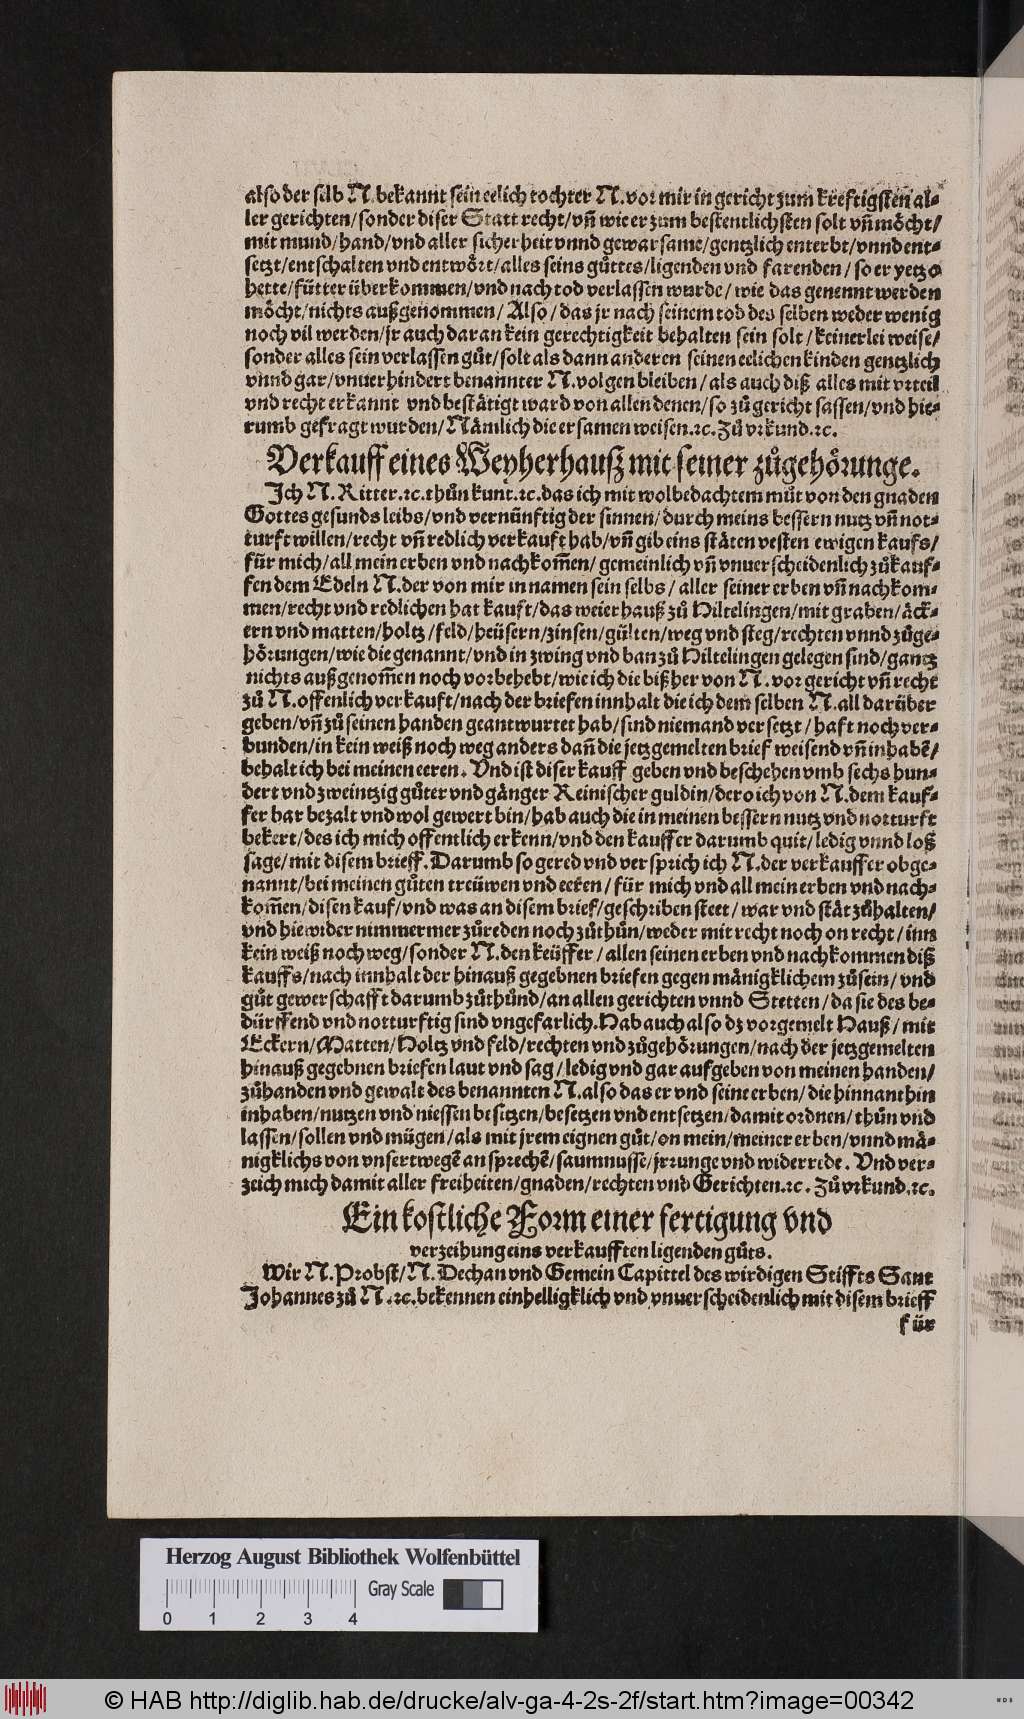 also der selb N. bekannt sein eelich tochter N. vor mir in gericht zum kreftigsten al-
ler gerichten/sonder diser Statt recht/vñ wie er zum bestentlichsten solt vñ möcht/
mit mund/hand/vnd aller sicherheit vnnd gewarsame/gentzlich enterbt/vnnd ent-
setzt/entschalten vnd entwört/alles seins gůttes/ligenden vnd farenden/so er yetz
hette/fütter überkommen/vnd nach tod verlassen wurde/wie das genennt werden
möcht/nichts außgenommen/Also/das jr nach seinem tod des selben weder wenig
noch vil werden/jr auch daran kein gerechtigkeit behalten sein solt/keinerlei weise/
sonder alles sein verlassen gůt/solt als dann anderen seinen eelichen kinden gentzlich
vnnd gar/vnuerhindert benannter N. volgen bleiben/als auch diß alles mit vrteil
vnd recht erkannt vnd bestätigt ward von allen denen/so zů gericht sassen/vnd hie-
rumb gefragt wurden/Nämlich die ersamen weisen.ꝛc. Zů vrkund.ꝛc.
Verkauff eines Weyherhauß mit seiner zůgehörunge.
Ich N. Ritter.ꝛc.thůn kunt.ꝛc.das ich mit wolbedachtem můt von den gnaden
Gottes gesunds leibs/vnd vernünftig der sinnen/durch meins bessern nutz vñ not-
turft willen/recht vñ redlich verkauft hab/vñ gib eins stäten vesten ewigen kaufs/
für mich/all mein erben vnd nachkom̃en/gemeinlich vñ vnuerscheidenlich zůkauf-
fen dem Edeln N. der von mir in namen sein selbs/aller seiner erben vñ nachkom-
men/recht vnd redlichen hat kauft/das weierhauß zů Hiltelingen/mit graben/äck-
ern vnd matten/holtz/feld/heüsern/zinsen/gülten/weg vnd steg/rechten vnnd zůge-
hörungen/wie die genannt/vnd in zwing vnd ban zů Hiltelingen gelegen sind/gantz
nichts außgenom̃en noch vorbehebt/wie ich die bißher von N. vor gericht vñ recht
zů N. offenlich verkauft/nach der briefen innhalt die ich dem selben N. all darüber
geben/vñ zů seinen handen geantwurtet hab/sind niemand versetzt/haft noch ver-
bunden/in kein weiß noch weg anders dañ die jetzgemelten brief weisend vñ inhabẽ/
behalt ich bei meinen eeren. Vnd ist diser kauff geben vnd beschehen vmb sechs hun-
dert vnd zweintzig gůter vnd gänger Reinischer guldin/dero ich von N. dem kauf-
fer bar bezalt vnd wol gewert bin/hab auch die in meinen bessern nutz vnd notturft
bekert/des ich mich offentlich erkenn/vnd den kauffer darumb quit/ledig vnnd loß
sage/mit disem brieff. Darumb so gered vnd versprich ich N. der verkauffer obge-
nannt/bei meinen gůten treüwen vnd eeren/für mich vnd all mein erben vnd nach-
kom̃en/disen kauf/vnd was an disem brief/geschriben steet/war vnd stät zůhalten/
vnd hiewider nimmermer zůreden noch zůthůn/weder mit recht noch on recht/inn
kein weiß noch weg/sonder N. den keüffer/allen seinen erben vnd nachkommen diß
kauffs/nach innhalt der hinauß gegebnen briefen gegen mänigklichem zůsein/vnd
gůt gewerschafft darumb zůthůnd/an allen gerichten vnnd Stetten/da sie des be-
dürffend vnd notturftig sind vngefarlich. Hab auch also dz vorgemelt Hauß/mit
Eckern/Matten/Holtz vnd feld/rechten vnd zůgehörungen/nach der jetzgemelten
hinauß gegebnen briefen laut vnd sag/ledig vnd gar aufgeben von meinen handen/
zůhanden vnd gewalt des benannten N. also das er vnd seine erben/die hinnanthin
inhaben/nutzen vnd niessen besitzen/besetzen vnd entsetzen/damit ordnen/thůn vnd
lassen/sollen vnd mügen/als mit jrem eignen gůt/on mein/meiner erben/vnnd mä-
nigklichs von vnsertwegẽ ansprechẽ/saumnusse/jrrunge vnd widerrede. Vnd ver-
zeich mich damit aller freiheiten/gnaden/rechten vnd Gerichten.ꝛc. Zů vrkund.ꝛc.
Ein kostliche Form einer fertigung vnd
verzeihung eins verkaufften ligenden gůts.
Wir N. Probst/N. Dechan vnd Gemein Capittel des wirdigen Stiffts Sant
Johannes zů N.ꝛc.bekennen einhelligklich vnd vnuerscheidenlich mit disem brieff
für
Herzog August Bibliothek Wolfenbüttel
Gray Scale
0 1 2 3 4
© HAB http://diglib.hab.de/drucke/alv-ga-4-2s-2f/start.htm?image=00342